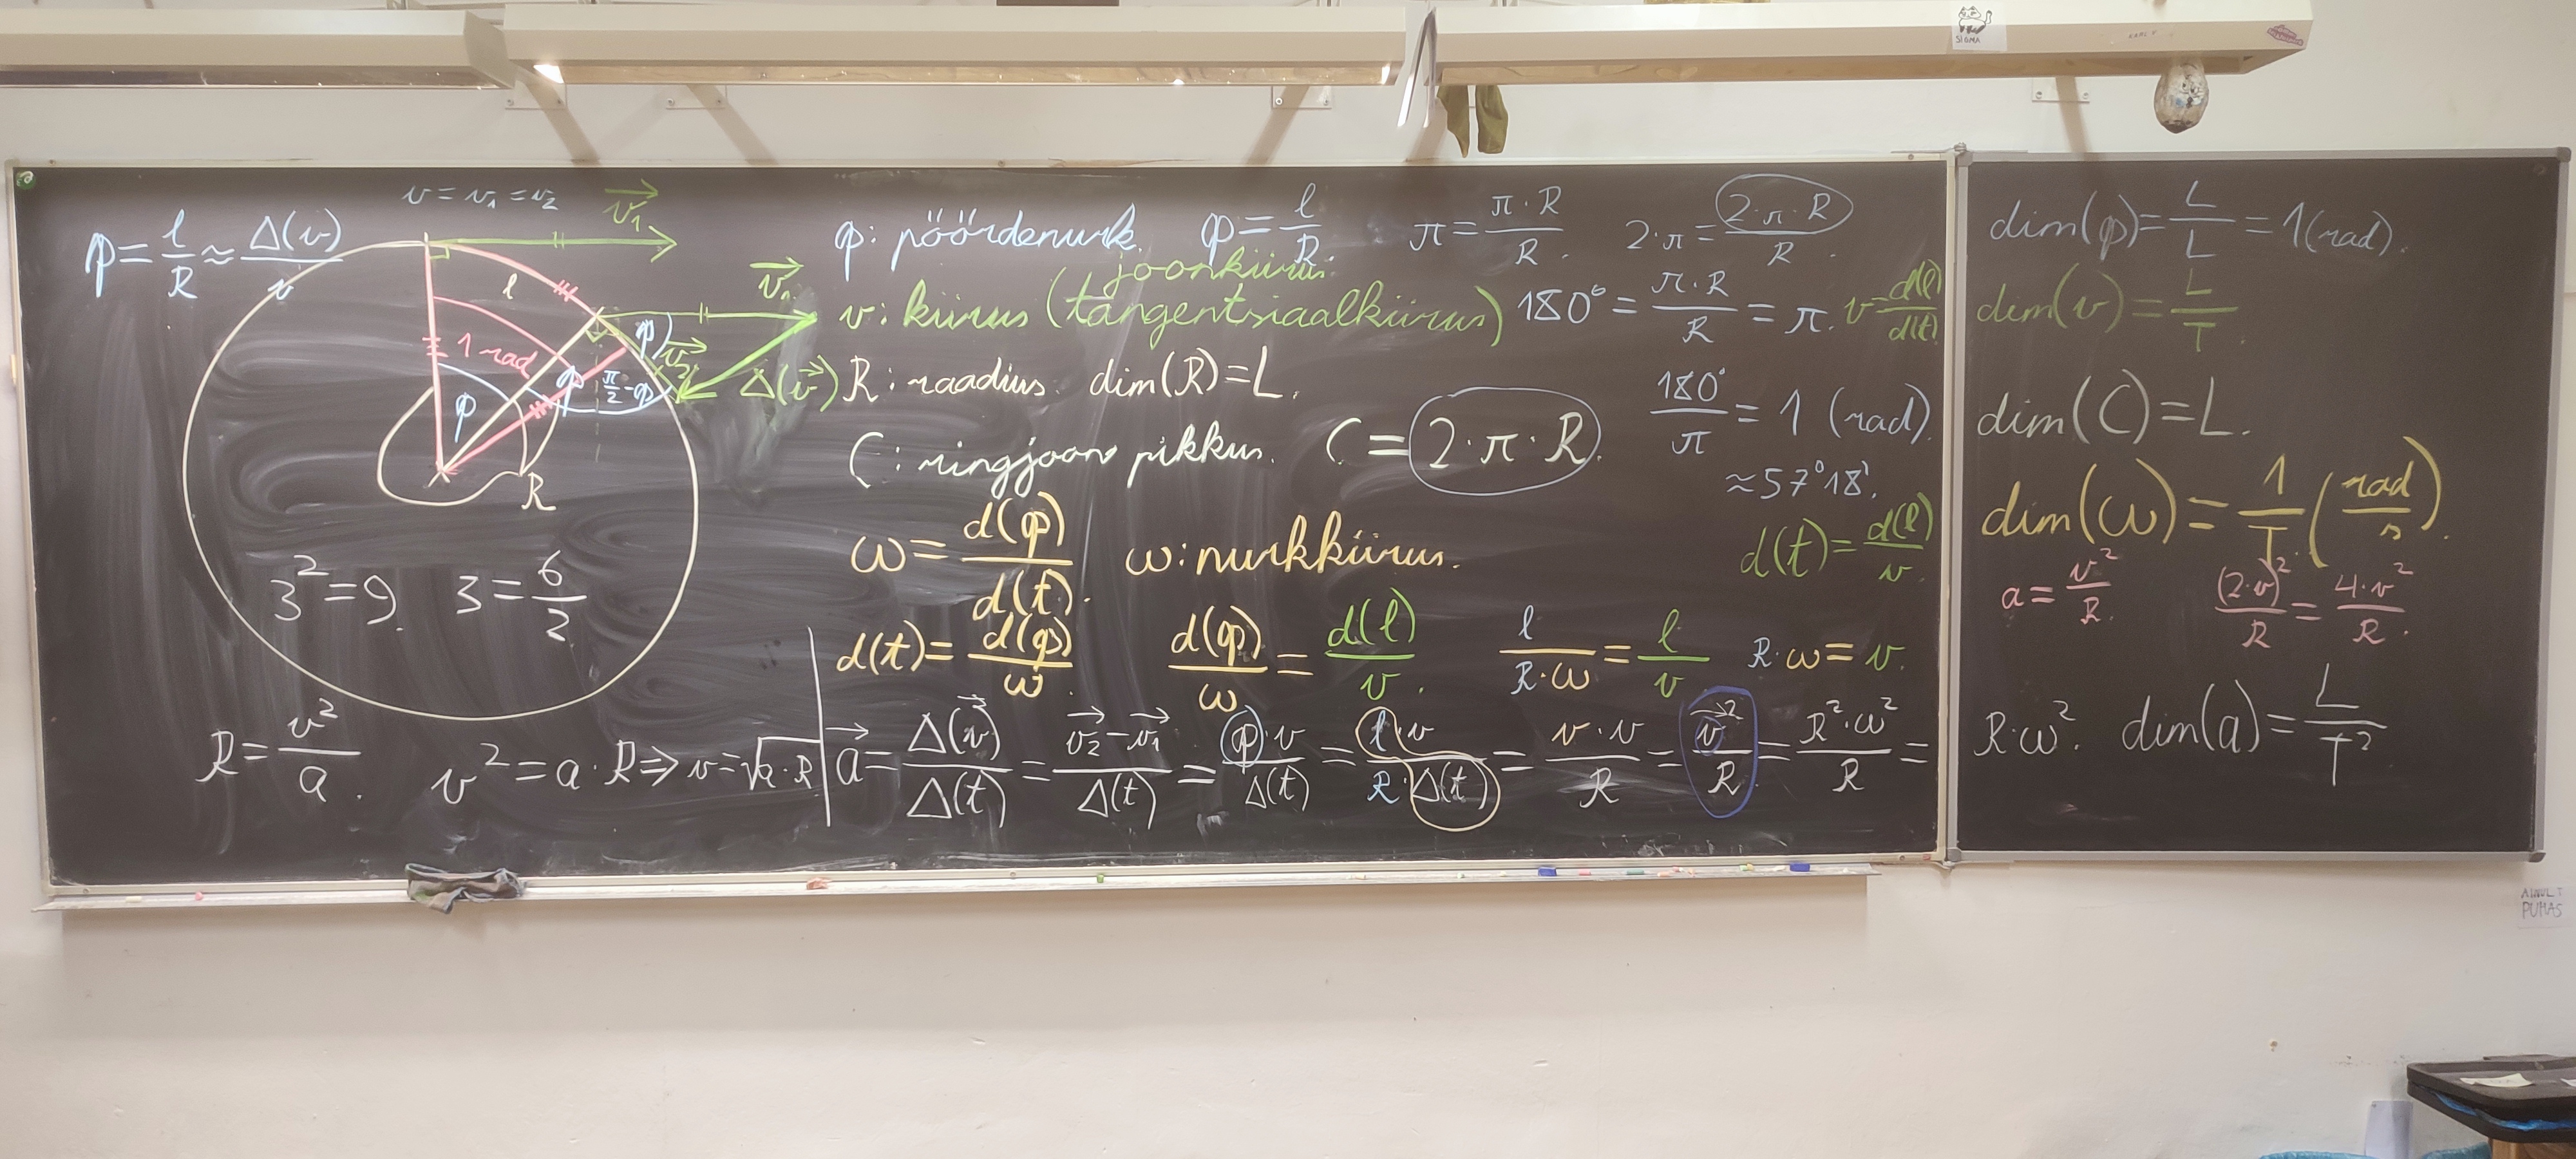 SIGMA
v = v₁ = v₂
v₁
φ = l/R ≈ Δ(v)/v
l
v₁
1 rad
φ
φ
φ
π/2 - φ
v₂
Δ(v)
R
3² = 9. 3 = 6/2
R = v²/a. v² = a·R ⇒ v = √a·R
φ: pöördenurk. φ = l/R. π = π·R/R. 2·π = 2·π·R/R.
joonkiirus
v: kiirus (tangentsiaalkiirus) 180° = π·R/R = π. v = d(l)/d(t)
R: raadius. dim(R) = L. 180°/π = 1 (rad).
C: ringjoone pikkus. C = 2·π·R. ≈ 57°18'.
ω = d(φ)/d(t). ω: nurkkiirus. d(t) = d(l)/v.
d(t) = d(φ)/ω. d(φ)/ω = d(l)/v. l/R·ω = l/v R·ω = v.
a = Δ(v)/Δ(t) = v₂ - v₁/Δ(t) = φ·v/Δ(t) = l·v/R·Δ(t) = v·v/R = v²/R = R²·ω²/R =
dim(φ) = L/L = 1 (rad).
dim(v) = L/T.
dim(C) = L.
dim(ω) = 1/T. (rad/s).
a = v²/R. (2·v)²/R = 4·v²/R.
R·ω². dim(a) = L/T²
PUHAS